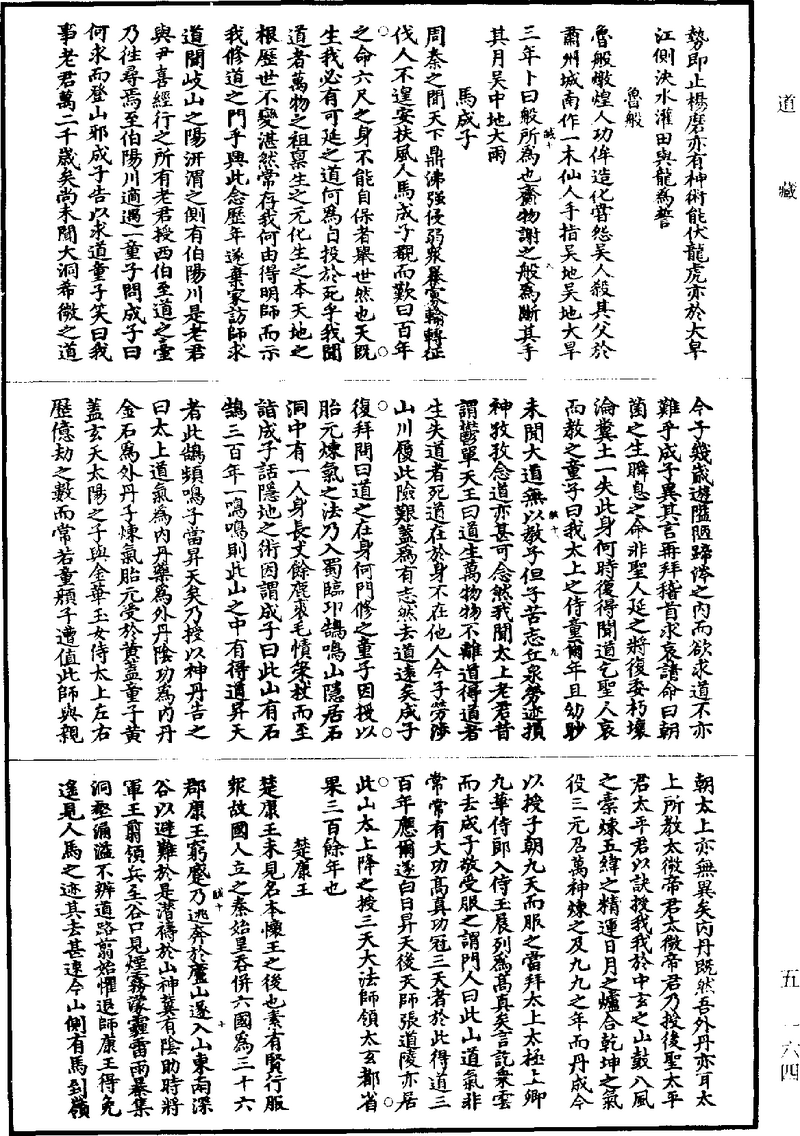 道藏
勢即止楊磨亦有神術能伏龍虎亦於大旱
江側決水灌田與龍為誓
魯般
魯般燉煌人功侔造化甞怨吳人殺其父於
肅州城南作一木仙人手指吳地吳地大旱
三年卜曰般所為也齎物謝之般為斷其手
其月吳中地大雨
馬成子
周秦之間天下鼎沸強侵弱眾暴寡輪轉征
伐人不遑安扶風人馬成子覩而歎曰百年
之命六尺之身不能自保者舉世然也天既
生我必有可延之道何為自投於死乎我聞
道者萬物之祖稟生之元化生之本天地之
根歷世不變湛然常存我何由得明師而示
我修道之門乎興此念歷年遂棄家訪師求
道聞岐山之陽汧渭之側有伯陽川是老君
與尹喜經行之所有老君授西伯至道之臺
乃徃尋焉至伯陽川適遇一童子問成子曰
何求而登山邪成子告以求道童子笑曰我
事老君萬二千歲矣尚未聞大洞希微之道
今子幾歲遊隘陋蹄涔之內而欲求道不亦
難乎成子異其言再拜稽首求哀請命曰朝
菌之生瞬息之命非聖人延之將復委朽壤
淪糞土一失此身何時復得聞道乞聖人哀
而教之童子曰我太上之侍童爾年且幼眇
未聞大道無以教子但子苦志丘泉勞迹損
神孜孜念道亦甚可念然我聞太上老君昔
謂鬱單天王曰道生萬物物不離道得道者
生失道者死道在於身不在他人今子勞涉
山川履此險艱蓋為有志然去道遠矣成子
復拜問曰道之在身何門修之童子因授以
胎元煉氣之法乃入蜀臨邛鵠鳴山隱居石
洞中有一人身長丈餘鹿裘毛幘策杖而至
詣成子話隱地之術因謂成子曰此山有石
鵠三百年一鳴鳴則此山之中有得道昇天
者此鵠頻鳴子當昇天矣乃授以神丹告之
曰太上道氣為內丹藥為外丹陰功為內丹
金石為外丹子煉氣胎元受於黃蓋童子黃
蓋玄天太陽之子與金華玉女侍太上左右
歷億劫之數而常若童顏子遭值此師與親
朝太上亦無異矣內丹既然吾外丹亦耳太
上所教太微帝君太微帝君乃授後聖太平
君太平君以訣授我我於中玄之山鼓八風
之橐煉五緯之精運日月之爐合乾坤之氣
役三元召萬神煉之及九九之年而丹成今
以授子朝九天而服之當拜太上太極上卿
九華侍郎入侍玉晨列為高真矣言訖乘雲
而去成子敬受服之謂門人曰此山道氣非
常常有大功高真功冠三天者於此得道三
百年應爾遂白日昇天後天師張道陵亦居
此山太上降之授三天大法師領太玄都省
果三百餘年也
楚康王
楚康王未見名本懷王之後也素有賢行服
衆故國人立之秦始皇吞併六國為三十六
郡康王窮蹙乃逃奔於廬山遂入山東南深
谷以避難於是潛禱於山神冀有陰助時將
軍王翦領兵至谷口見煙霧濛霾雷雨暴集
洞壑漏溢不辨道路翦始懼退師康王得免
遙見人馬之迹其去甚遠今山側有馬到嶺
五一六四